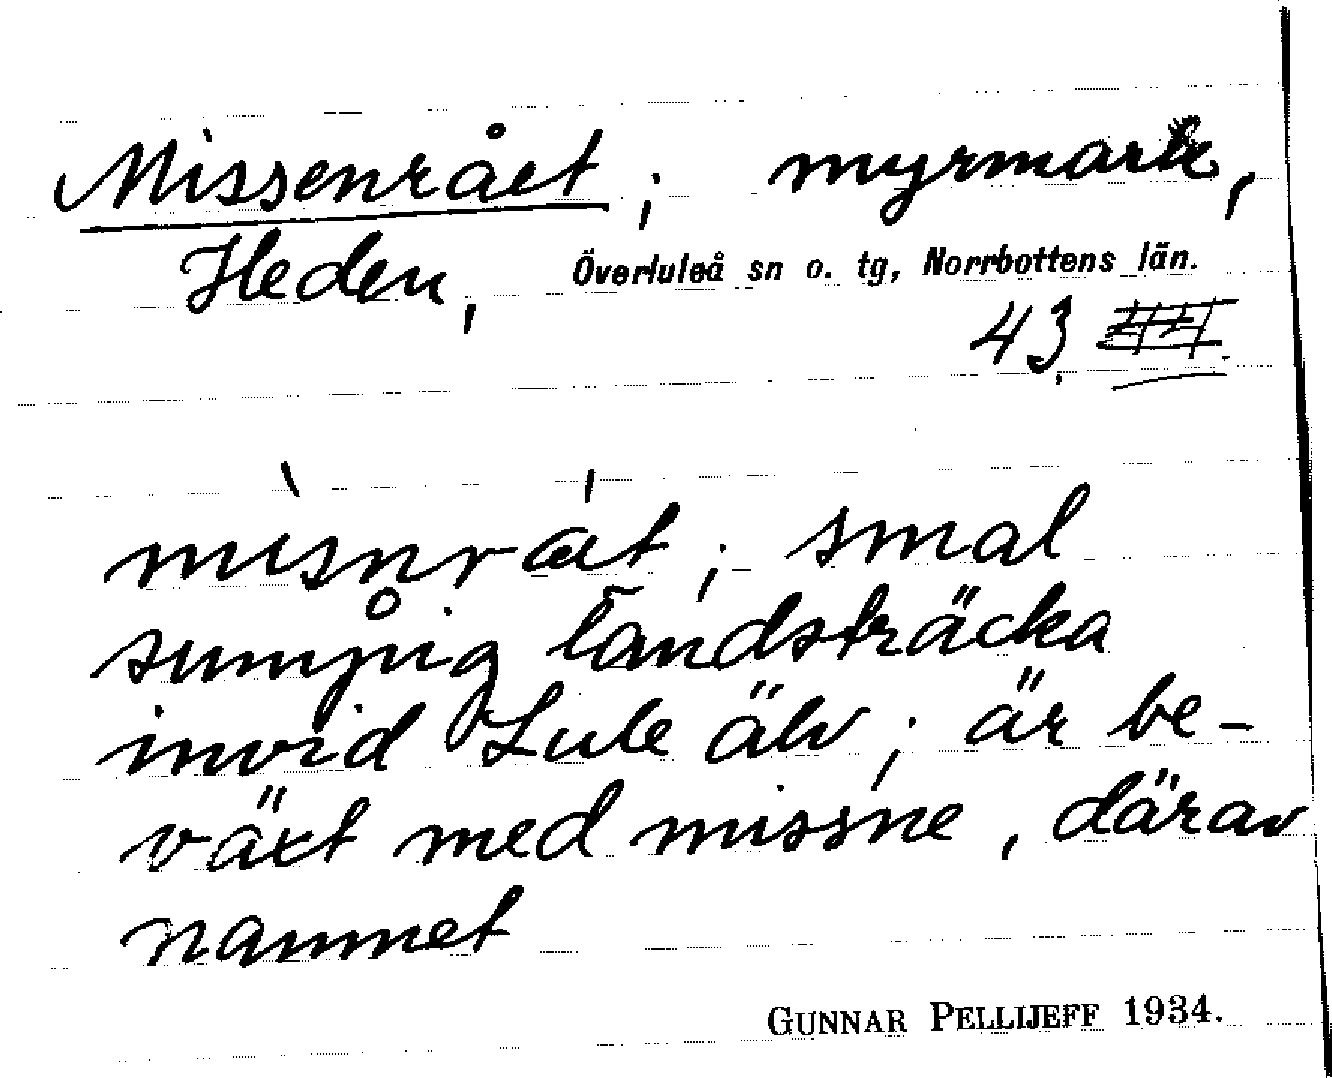 Missenrået; myrmark,
Heden, Överluleå sn o. tg, Norrbottens län.
43
sumpig landsträcka
invid Lule älv; är be-
växt med missne, därav
namnet
GUNNAR PELLIJEFF 1934.